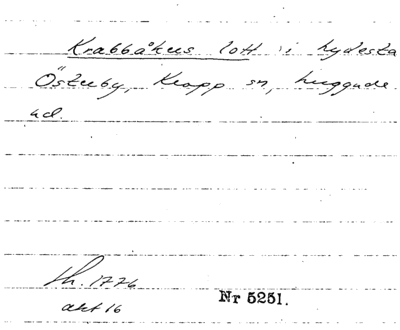 Krabbåkus lott i hydesta
Östuby, Kropp sn, Luggude
hd.
Lh. 1776
akt 16
Nr 5251.